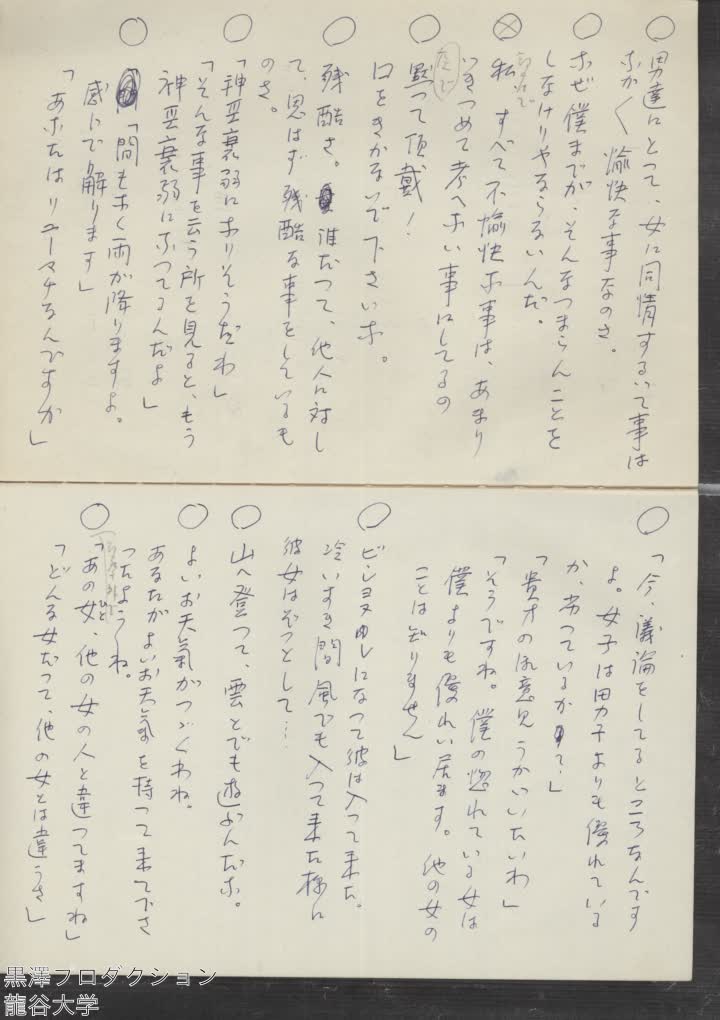 男達にとつて、女に同情するつて事は
ホかく愉快な事なのさ。
なぜ僕までが、そんなつまらんことを
しなけりやならないんだ。
私 すべて不愉快な事は、あまり
いきつめて考へない事にしてるの
黙つて頂戴！
口をきかないで下さいな。
残酷さ。誰だつて、他人に対し
て、思はず残酷な事をしているも
のさ。
「神亜衰弱になりそうだわ」
「そんな事を云う所を見ると、もう
神亜衰弱になつてるんだよ」
「間もなく雨が降りますよ。
感じで解ります」
「あなたはリューマチなんですか」
「今、議論をしてるところなんです
よ。女子は男子よりも優れている
か、劣つているかつて・」
「貴方の御意見うかがいたいわ」
「そうですね。僕の惚れている女は
僕よりも優れて居ます。他の女の
ことは知りません」
ビショヌレになつて彼は入つて来た。
冷いすき間風でも入つて来た様に
彼女はぞつとして…
山へ登つて、雲とでも遊ぶんだな。
よいお天氣がつゞくわね。
あなたがよいお天氣を持つて来て下さ
つたようね。
「あの女、他の女の人と違つてますね」
「どんな女だつて、他の女とは違うさ」
黒澤プロダクション
龍谷大学